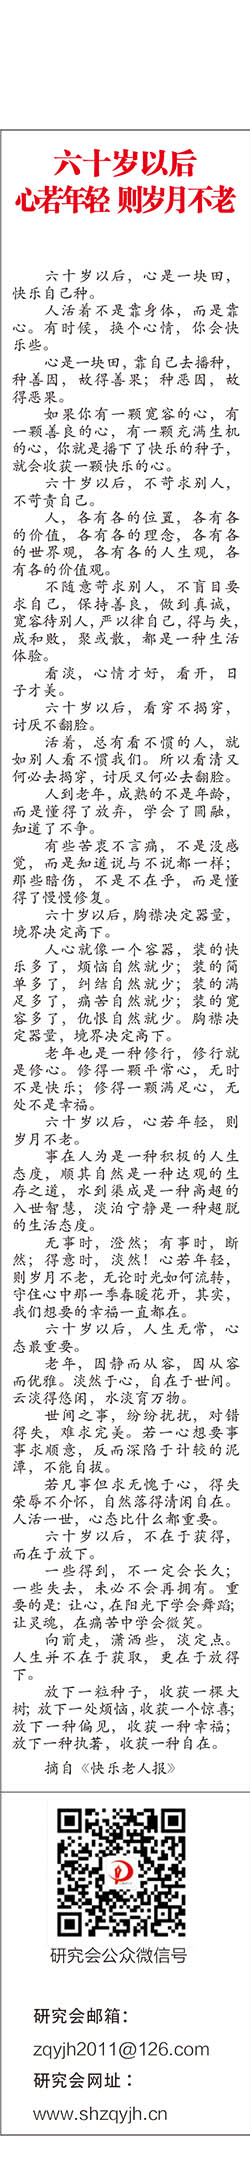 六十岁以后
心若年轻 则岁月不老
六十岁以后，心是一块田，
快乐自己种。
人活着不是靠身体，而是靠
心。有时候，换个心情，你会快
乐些。
心是一块田，靠自己去播种，
种善因，故得善果；种恶因，故
得恶果。
如果你有一颗宽容的心，有
一颗善良的心，有一颗充满生机
的心，你就是播下了快乐的种子，
就会收获一颗快乐的心。
六十岁以后，不苛求别人，
不苛责自己。
人，各有各的位置，各有各
的价值，各有各的理念，各有各
的世界观，各有各的人生观，各
有各的价值观。
不随意苛求别人，不盲目要
求自己，保持善良，做到真诚，
宽容待别人，严以律自己，得与失，
成和败，聚或散，都是一种生活
体验。
看淡，心情才好，看开，日
子才美。
六十岁以后，看穿不揭穿，
讨厌不翻脸。
活着，总有看不惯的人，就
如别人看不惯我们。所以看清又
何必去揭穿，讨厌又何必去翻脸。
人到老年，成熟的不是年龄，
而是懂得了放弃，学会了圆融，
知道了不争。
有些苦衷不言痛，不是没感
觉，而是知道说与不说都一样；
那些暗伤，不是不在乎，而是懂
得了慢慢修复。
六十岁以后，胸襟决定器量，
境界决定高下。
人心就像一个容器，装的快
乐多了，烦恼自然就少；装的简
单多了，纠结自然就少；装的满
足多了，痛苦自然就少；装的宽
容多了，仇恨自然就少。胸襟决
定器量，境界决定高下。
老年也是一种修行，修行就
是修心。修得一颗平常心，无时
不是快乐；修得一颗满足心，无
处不是幸福。
六十岁以后，心若年轻，则
岁月不老。
事在人为是一种积极的人生
态度，顺其自然是一种达观的生
存之道，水到渠成是一种高超的
入世智慧，淡泊宁静是一种超脱
的生活态度。
无事时，澄然；有事时，断
然；得意时，淡然！心若年轻，
则岁月不老，无论时光如何流转，
守住心中那一季春暖花开，其实，
我们想要的幸福一直都在。
六十岁以后，人生无常，心
态最重要。
老年，因静而从容，因从容
而优雅。淡然于心，自在于世间。
云淡得悠闲，水淡育万物。
世间之事，纷纷扰扰，对错
得失，难求完美。若一心想要事
事求顺意，反而深陷于计较的泥
潭，不能自拔。
若凡事但求无愧于心，得失
荣辱不介怀，自然落得清闲自在。
人活一世，心态比什么都重要。
六十岁以后，不在于获得，
而在于放下。
一些得到，不一定会长久；
一些失去，未必不会再拥有。重
要的是：让心，在阳光下学会舞蹈；
让灵魂，在痛苦中学会微笑。
向前走，潇洒些，淡定点。
人生并不在于获取，更在于放得
下。
放下一粒种子，收获一棵大
树；放下一处烦恼，收获一个惊喜；
放下一种偏见，收获一种幸福；
放下一种执著，收获一种自在。
摘自《快乐老人报》
研究会公众微信号
研究会邮箱：
zqyjh2011@126.com
研究会网址：
www.shzqyjh.cn